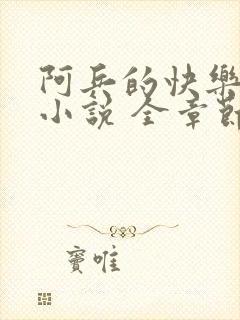 阿兵的快樂
小說 全章節
竇唯